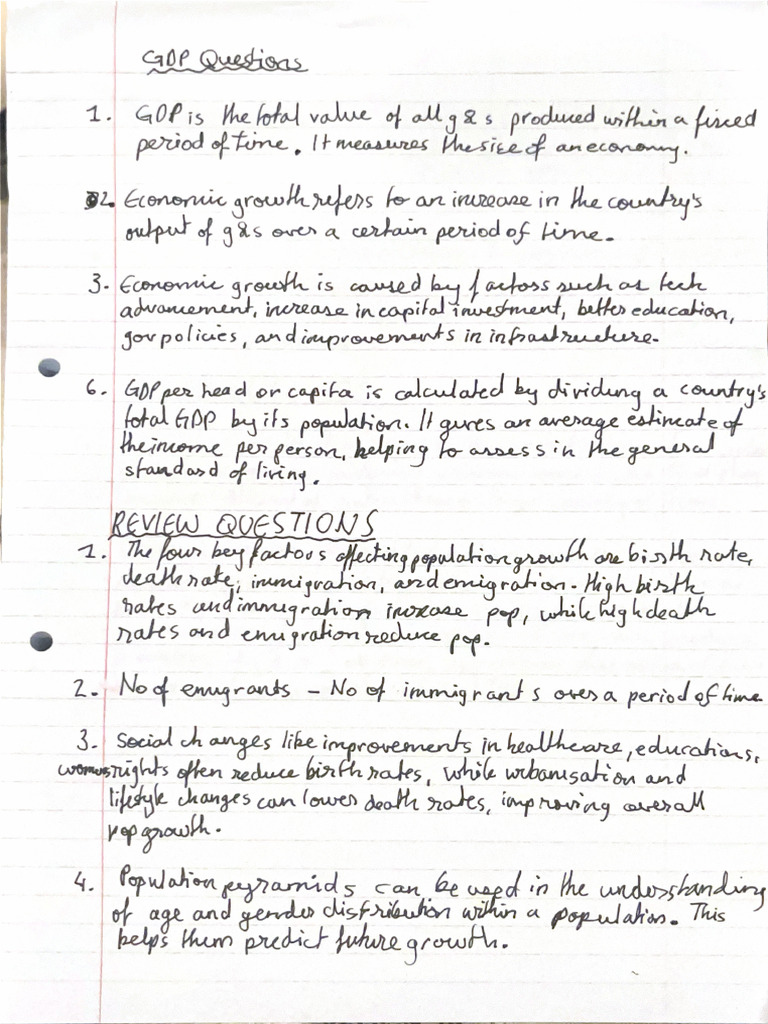 GDP Questions
1. GDP is the total value of all g & s produced within a fixed
period of time. It measures the size of an economy.
2. Economic growth refers to an increase in the country's
output of g&s over a certain period of time.
3. Economic growth is caused by factors such as tech
advancement, increase in capital investment, better education,
gov policies, and improvements in infrastructure.
6. GDP per head or capita is calculated by dividing a country's
total GDP by its population. It gives an average estimate of
the income per person, helping to assess in the general
standard of living.
REVIEW QUESTIONS
1. The four key factors affecting population growth are birth rate,
death rate, immigration, and emigration. High birth
rates and immigration increase pop, while high death
rates and emigration reduce pop.
2. No of emigrants - No of immigrants over a period of time
3. Social changes like improvements in healthcare, educations,
womens rights often reduce birth rates, while urbanisation and
lifestyle changes can lower death rates, improving overall
pop growth.
4. Population pyramids can be used in the understanding
of age and gender distribution within a population. This
helps them predict future growth.